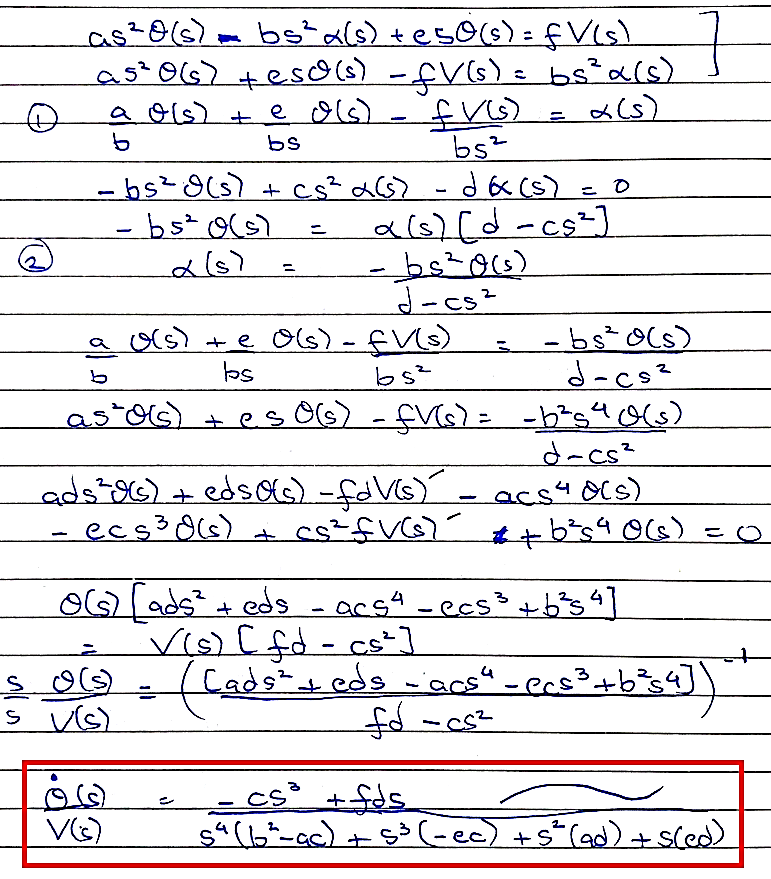 as²θ(s) - bs²α(s) + esθ(s) = fV(s)
as²θ(s) + esθ(s) - fV(s) = bs²α(s)
① a/b θ(s) + e/bs θ(s) - fV(s)/bs² = α(s)
-bs²θ(s) + cs²α(s) - dα(s) = 0
-bs²θ(s) = α(s)[d - cs²]
② α(s) = -bs²θ(s)/d-cs²
a/b θ(s) + e/bs θ(s) - fV(s)/bs² = -bs²θ(s)/d-cs²
as²θ(s) + esθ(s) - fV(s) = -b²s⁴θ(s)/d-cs²
ads²θ(s) + edsθ(s) - fdV(s) - acs⁴θ(s)
- ecs³θ(s) + cs²fV(s) + b²s⁴θ(s) = 0
θ(s)[ads² + eds - acs⁴ - ecs³ + b²s⁴]
= V(s)[fd - cs²]
s/s θ(s)/V(s) = ([ads² + eds - acs⁴ - ecs³ + b²s⁴]/fd - cs²)⁻¹
θ̇(s)/V(s) = -cs³ + fds/s⁴(b²-ac) + s³(-ec) + s²(ad) + s(ed)